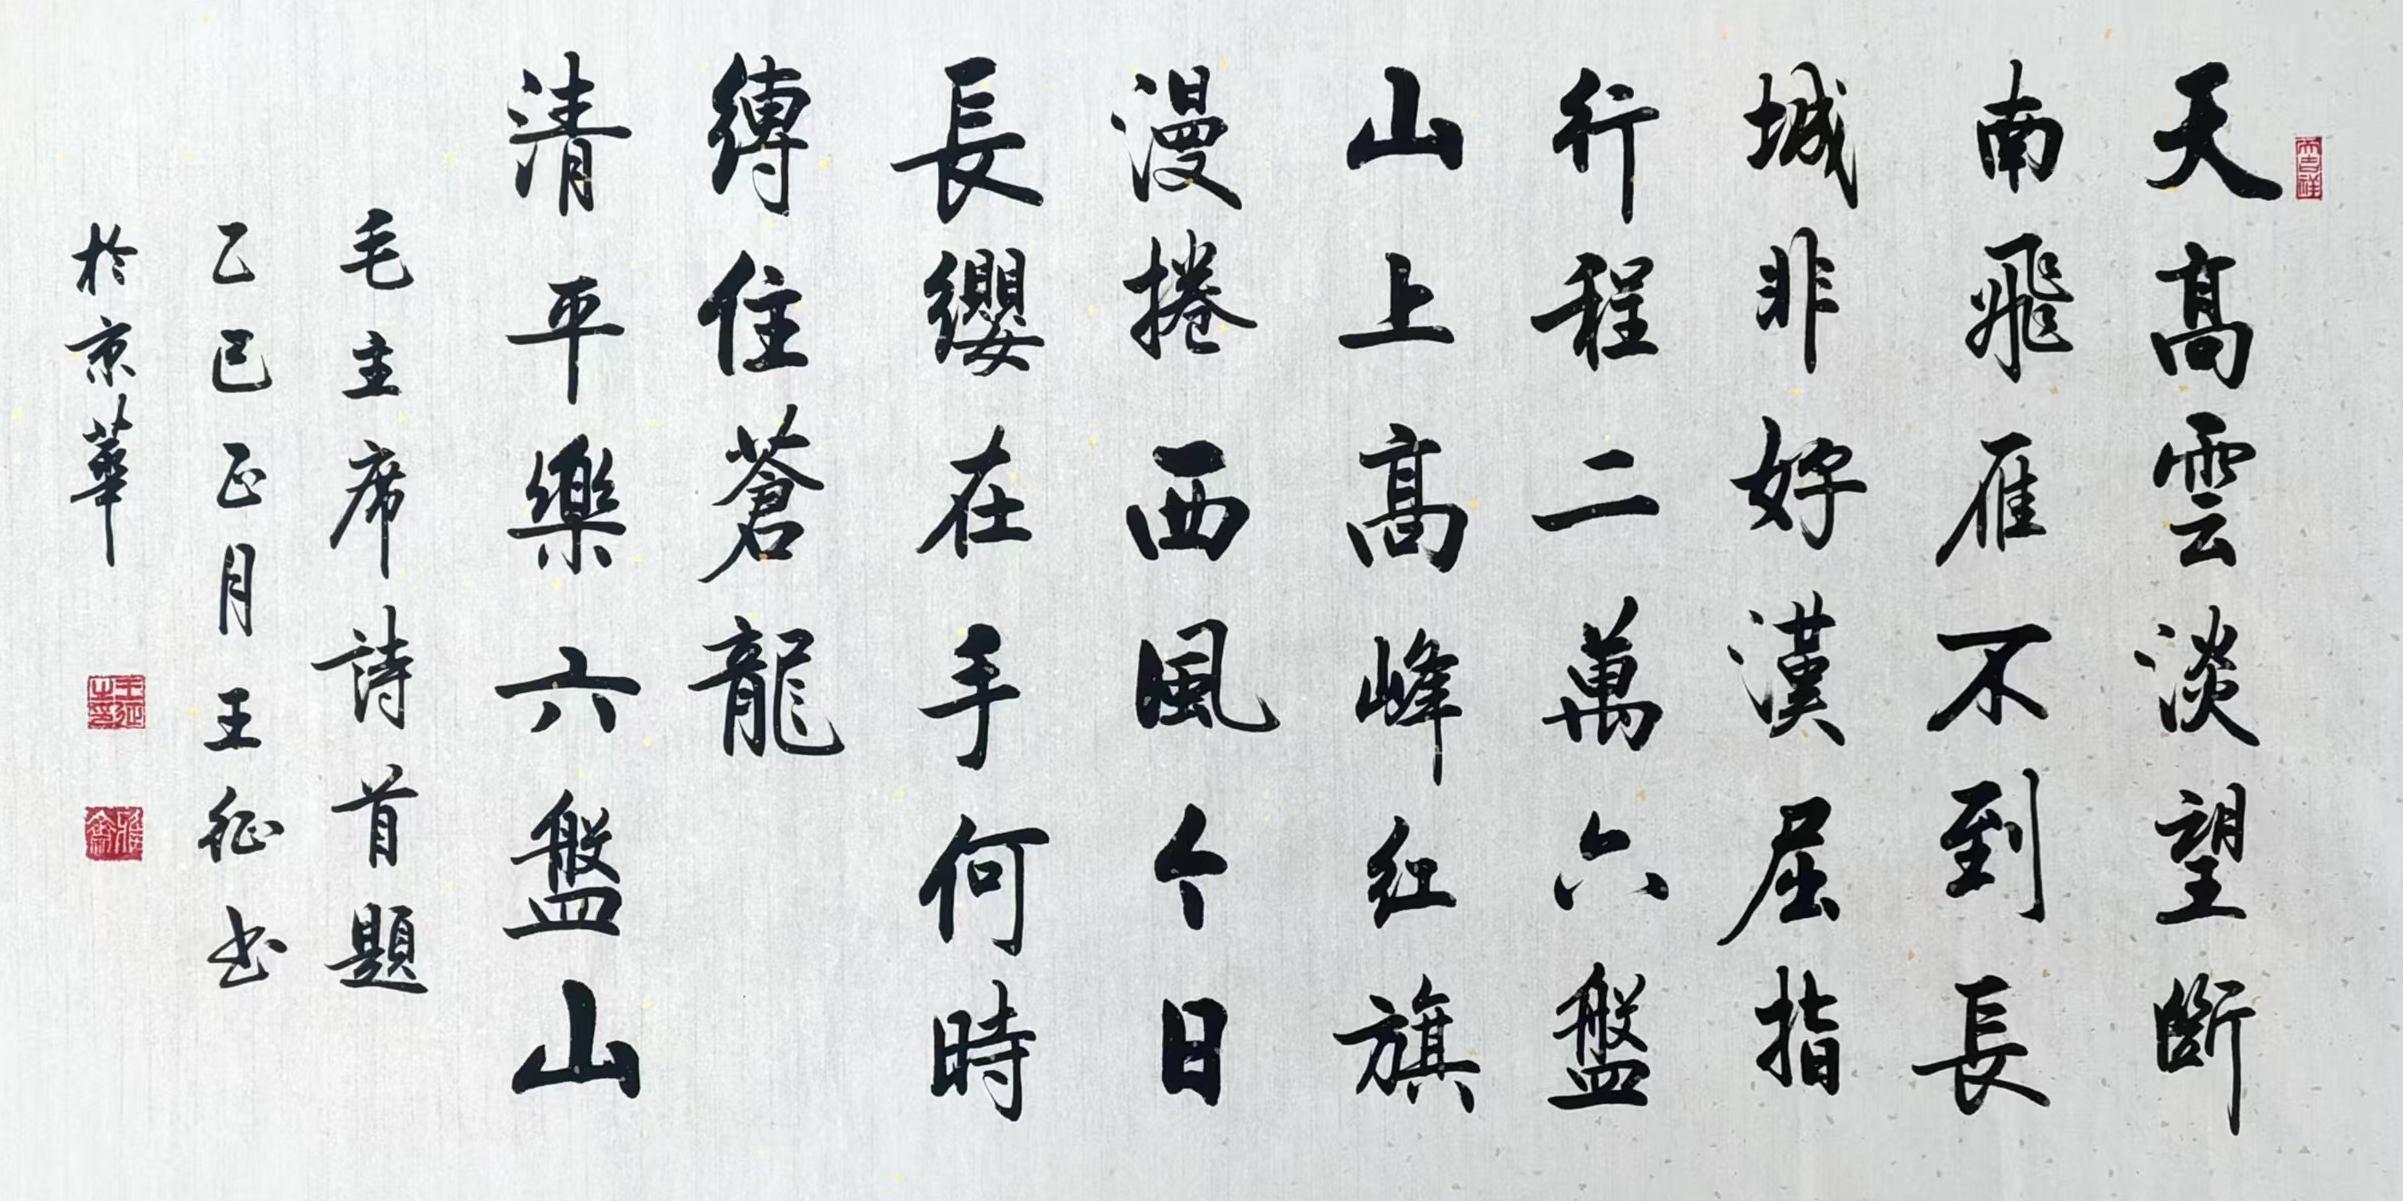 天高雲淡望斷
南飛雁不到長
城非好漢屈指
行程二萬六盤
山上高峰紅旗
漫捲西風今日
長纓在手何時
縛住蒼龍
清平樂六盤山
毛主席詩首題
乙巳正月王征书
於京華